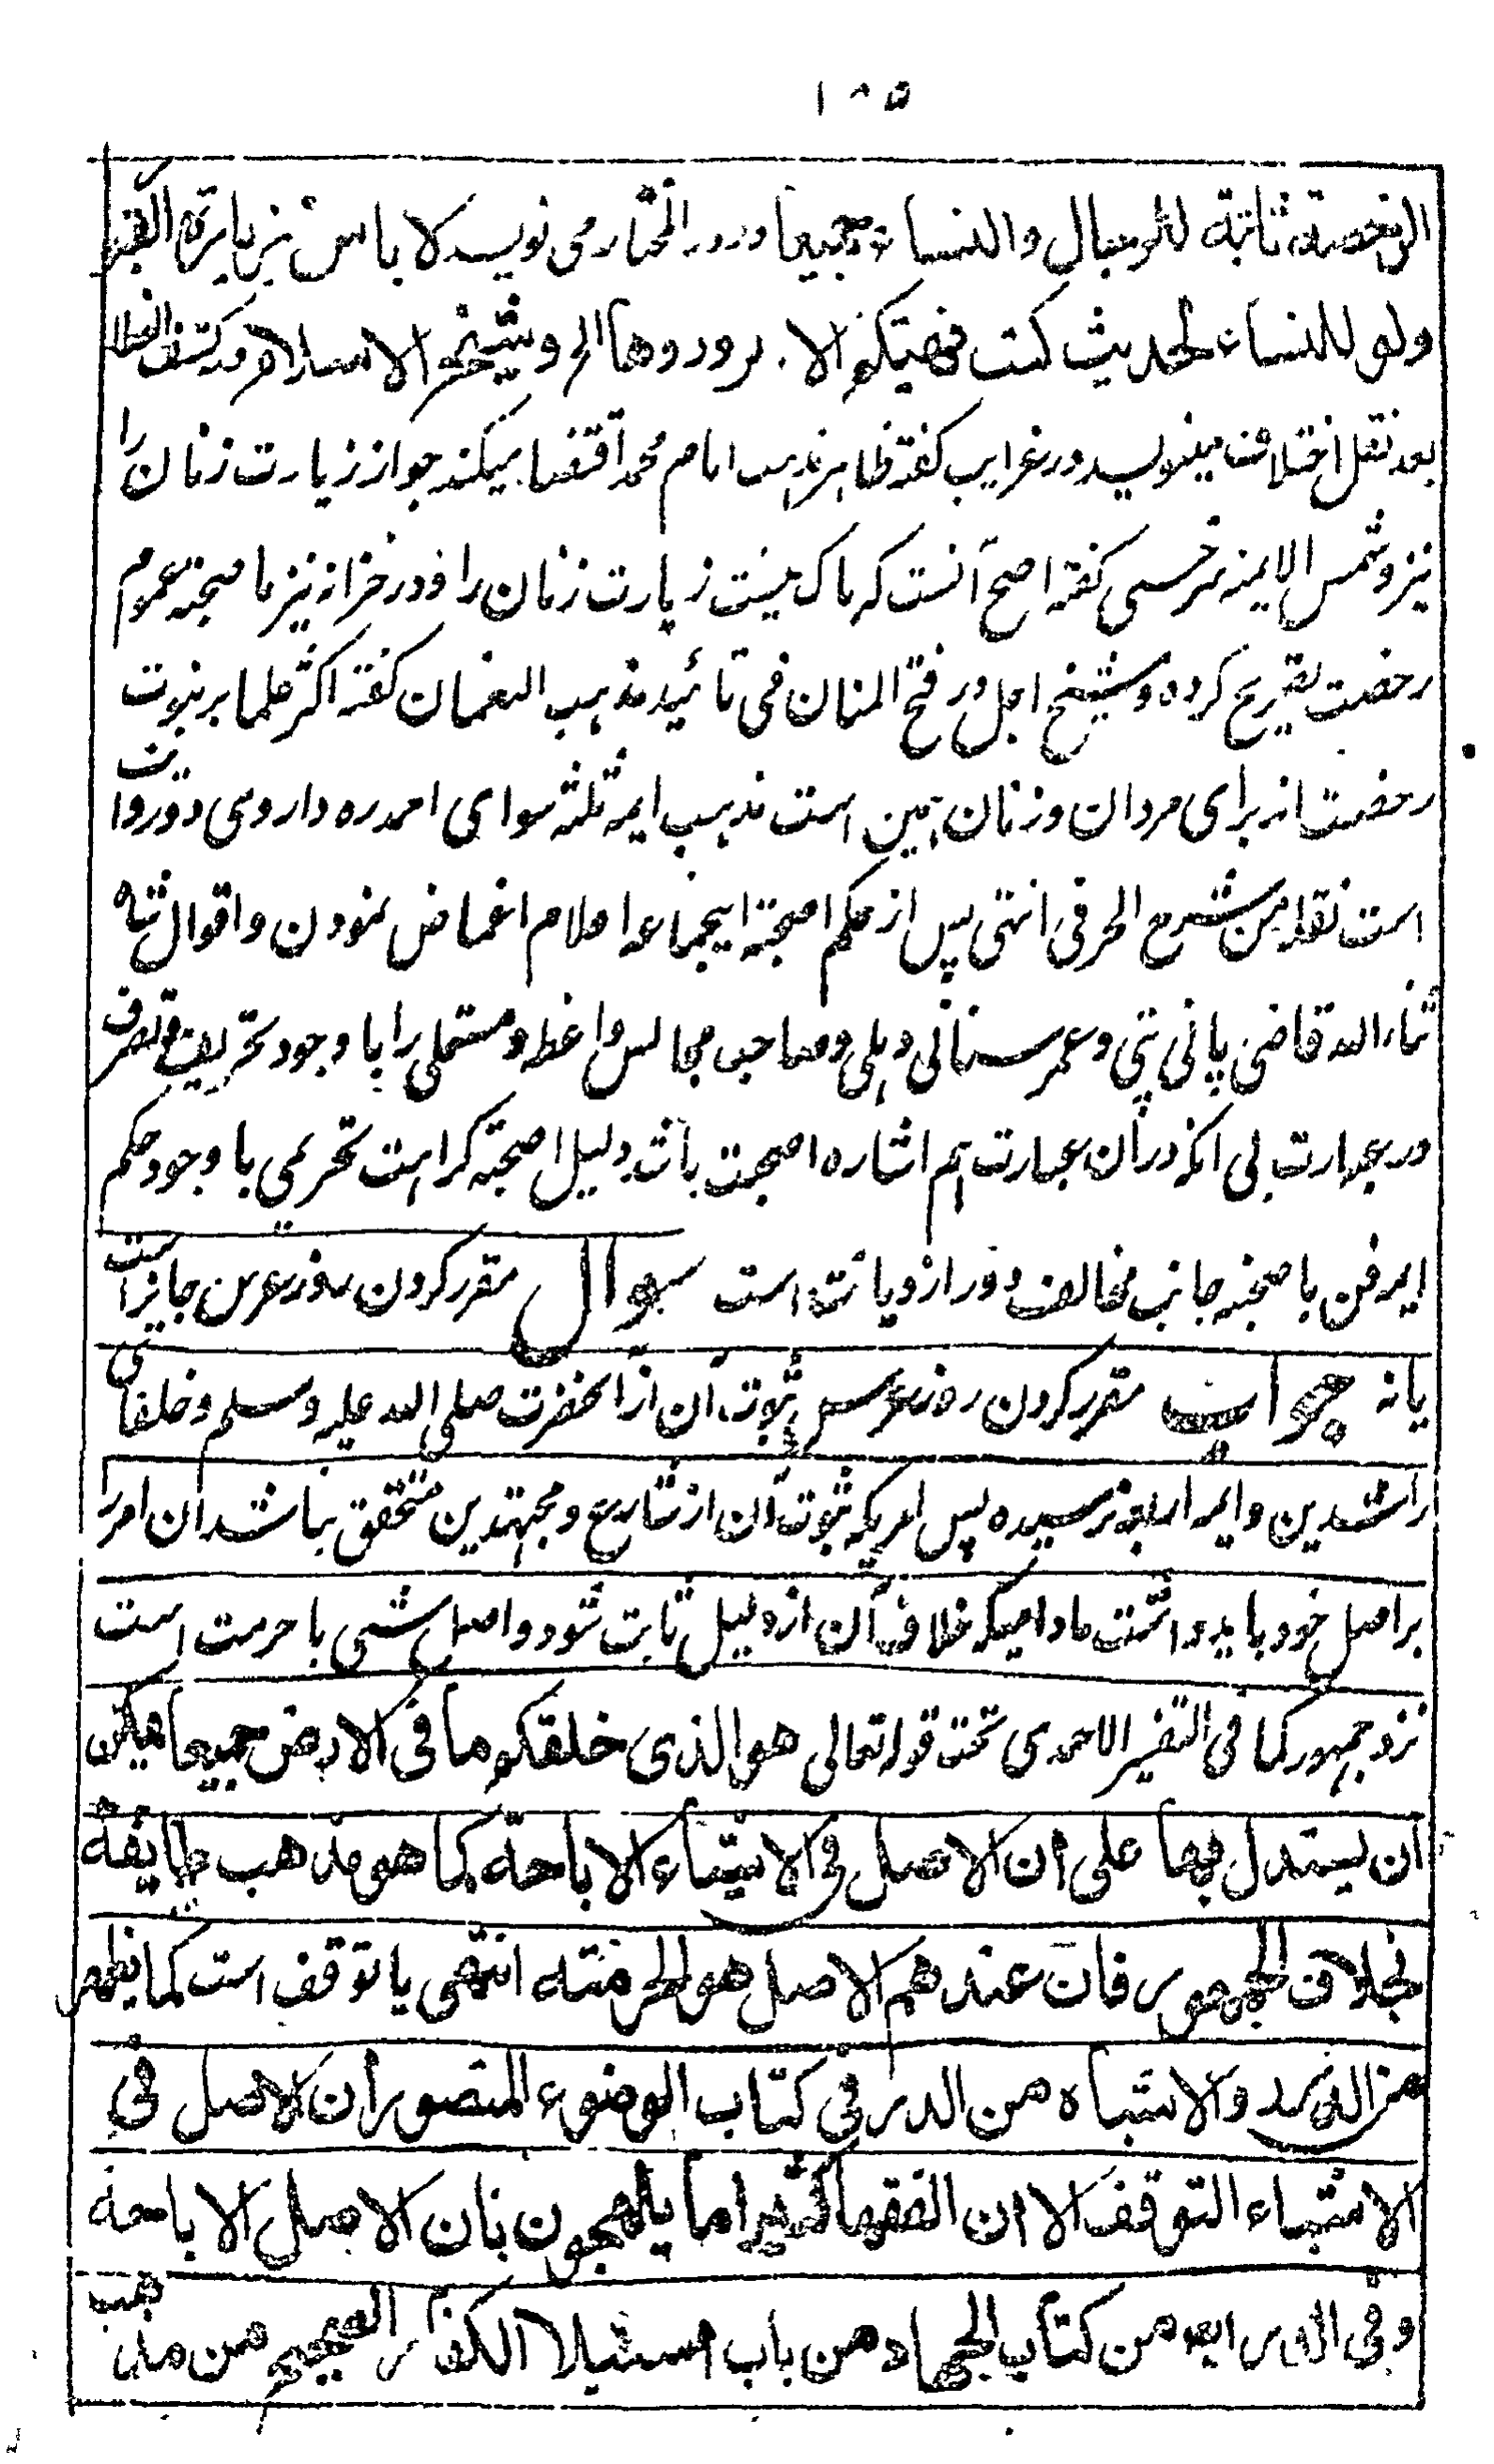 ۱۸۵
الرخصة ثابتة للرجال والنساء جميعا ودر در المختار می نویسد لا باس بزيارة القبور
ولو للنساء لحديث كنت نهيتكم الا فزوروها الخ وشيخ الاسلام در كشف الغطا
بعد نقل اختلاف مینویسد در غرایب گفته ظاهر مذهب امام محمد اقتضا میکند جواز زیارت زنان را
نیز و شمس الایمه سرخسی گفته اصح آنست که باک نیست زیارت زنان را و در خزانه نیز باصحیة عموم
رخصت تصریح کرده و شیخ اجل در فتح المنان فی تائید مذهب النعمان گفته اکثر علما بر ثبوت
رخصت اند برای مردان و زنان همین است مذهب ایمه ثلثه سوای احمد ره دار وی دو روایت
است نقلا من شرح الخرقی انتهی پس از حکم اصحیة اینجماعه اعلام اغماض نمودن و اقوال
ثناء الله قاضی پانی پتی و عمر سنائی دهلی و صاحب مجالس واعظ و مستملی را با وجود تحریف و تصرف
در عبارت بی انکه در ان عبارت هم اشاره اصحیت باشد دلیل اصحیة کراهت تحریمی با وجود حکم
ایمه فن باصحیة جانب مخالف دور از دیانت است سوال مقرر کردن روز عرس جایز است
یا نه جواب مقرر کردن روز عرس ثبوت آن از آنحضرت صلی الله علیه وسلم و خلفای
راشدین و ایمه اربعه نرسیده پس امریکه ثبوت آن از شارع و مجتهدین متحقق نباشد ان امر را
بر اصل خود باید داشت مادامیکه خلاف آن از دلیل ثابت شود و اصل شی با حرمت است
نزد جمهور کما فی التفسیر الاحمدی تحت قوله تعالی هو الذی خلق لكم ما فی الارض جميعا يمكن
ان يستدل بها على ان الاصل فى الاشياء الاباحة كما هو مذهب طايفة
بخلاف الجمهور فان عندهم الاصل هو الحرمته انتهى يا توقف است كما يظهر
من الدرر والاشباه من الدر فى كتاب الوضوء المنصور ان الاصل فى
الاشياء التوقف الا ان الفقها كثيرا ما يلهجون بان الاصل الاباحة
وفى الدر ايضه من كتاب الجهاد من باب استيلا الكفار الصحيح من مذهب